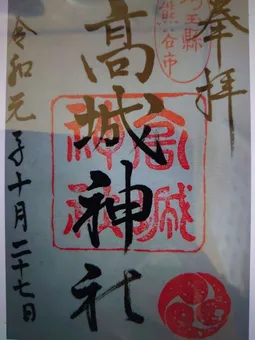 奉拝
埼玉縣
熊谷市
高城神社
高城
神社
令和元年十月二十七日